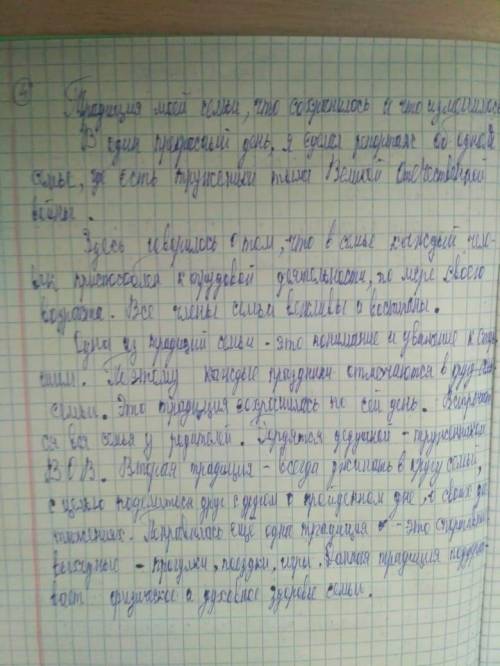 4
Традиция моей семьи, что сохранилось и что изменилось
В один прекрасный день, я сделал репортаж об одной
семье, где есть труженик тыла Великой Отечественной
войны.
Здесь говорилось о том, что в семье каждый чело-
век приспособлен к трудовой деятельности, по мере своего
возраста. Все члены семьи вежливы и воспитаны.
Одна из традиций семьи - это понимание и уважение к стар
шим. Поэтому каждые праздники отмечаются в кругу
семьи. Эта традиция сохранилась по сей день. Встречает
ся вся семья у родителей. Гордятся дедушкой - тружеником
ВОВ. Вторая традиция - всегда ужинать в кругу семьи,
с целью поделиться друг с другом о пройденном дне, о своих дос
тижениях. Понравилась ещё одна традиция - это спортивные
выходные - прогулки, поездки, игры. Данная традиция поддержи-
вает физическое и духовное здоровье семьи.